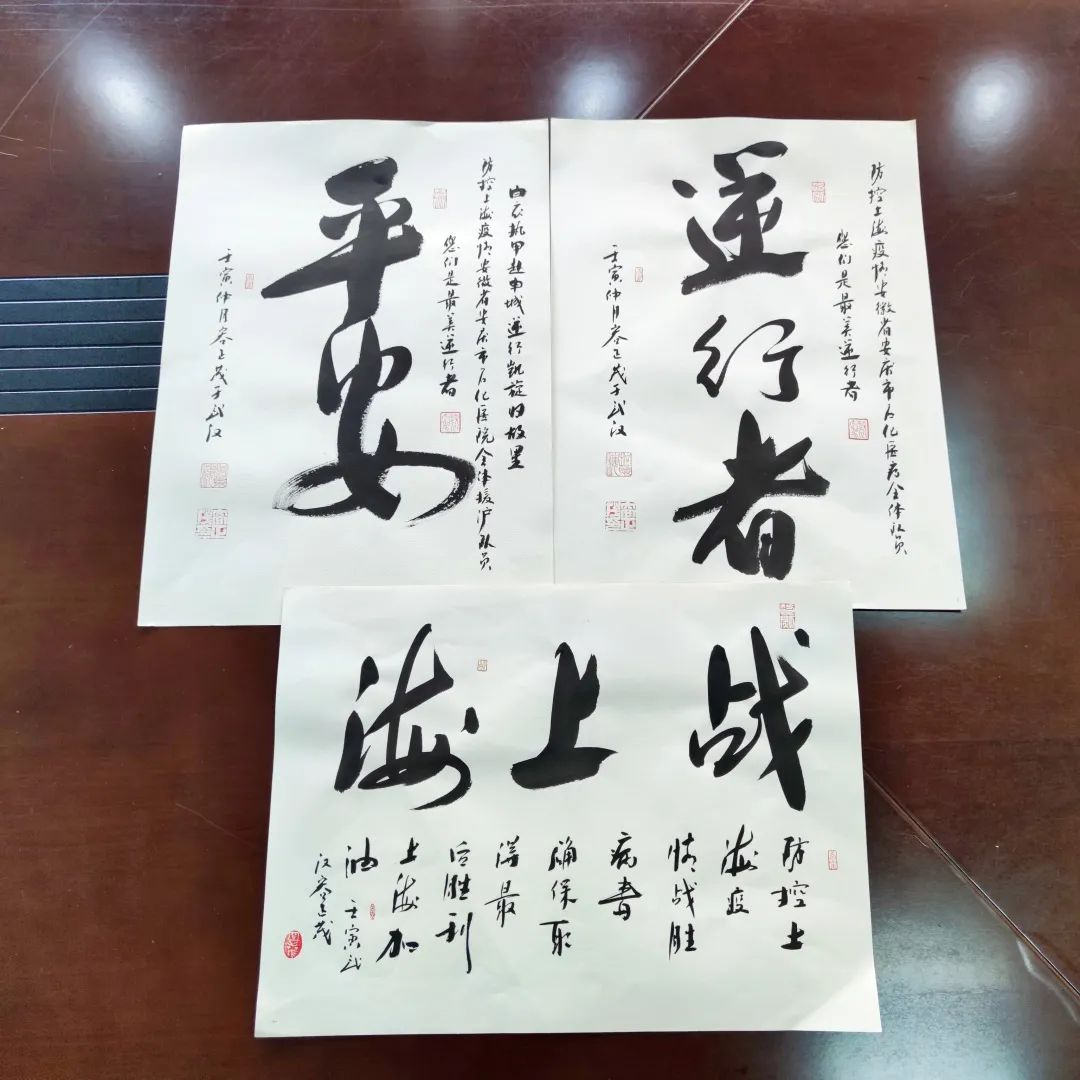 平安
白衣执甲赴申城逆行凯旋归故里
防控上海疫情安徽省安庆市石化医院全体援沪队员
您们是最美逆行者
壬寅仲月
茂于武汉
逆行者
防控上海疫情安徽省安庆市石化医院全体队员
您们是最美逆行者
壬寅仲月
茂于武汉
战上海
防控上
海疫
情战胜
病毒
确保取
得最
后胜利
上海加
油 壬寅武
汉
茂